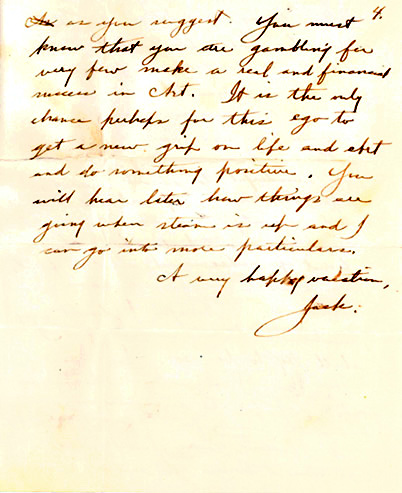 4.
as you suggest. You must
know that you are gambling for
very few make a real and financial
success in Art. It is the only
chance perhaps for this ego to
get a new grip on life and art
and do something positive. You
will hear later how things are
going when steam is up and I
can go into more particulars.
A very happy vacation,
Jack.